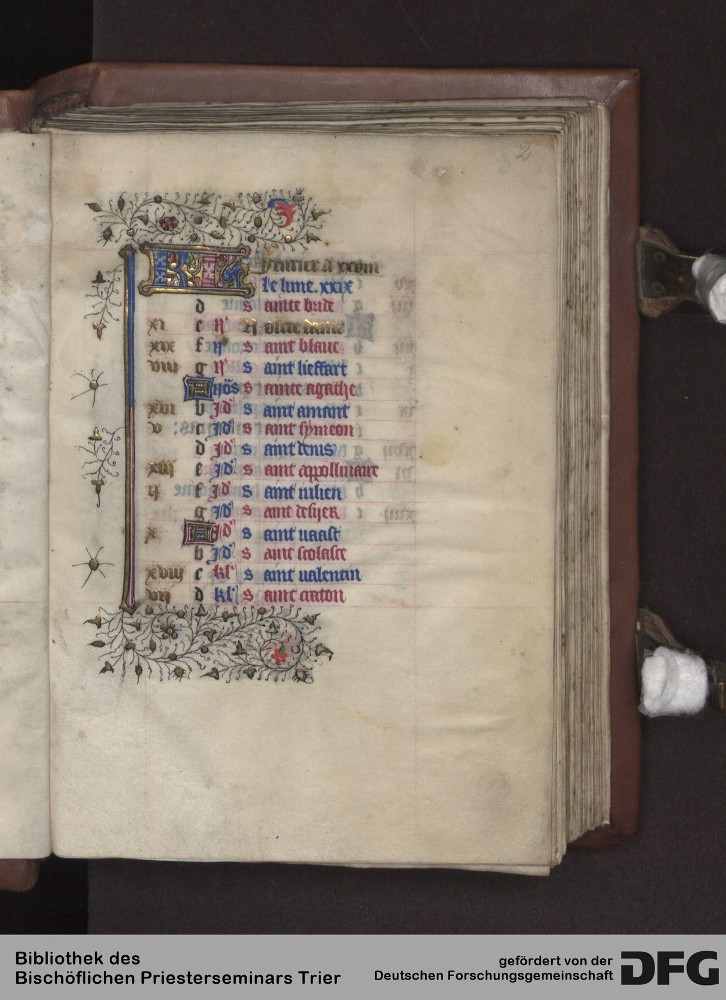 2
Feurier a xxviii
le lune. xxix
d s ainte bride
xi e n̅' N ostre dame
xix f n̅' s aint blaue
viij g n̅' s aint lieffart
A Nos s ainte agathe
xvi b Jd' s aint amant
v c Jd' s aint symeon
d Jd' s aint denis
xiij e Jd' s aint appollinaire
ij f Jd' s aint iulien
g Jd' s aint desijer
x A Jd' s aint uaast
b Jd' s aint scolaste
xviij c kl' s aint ualentin
vij d kl' s aint craton
Bibliothek des
Bischöflichen Priesterseminars Trier
gefördert von der
Deutschen Forschungsgemeinschaft
DFG